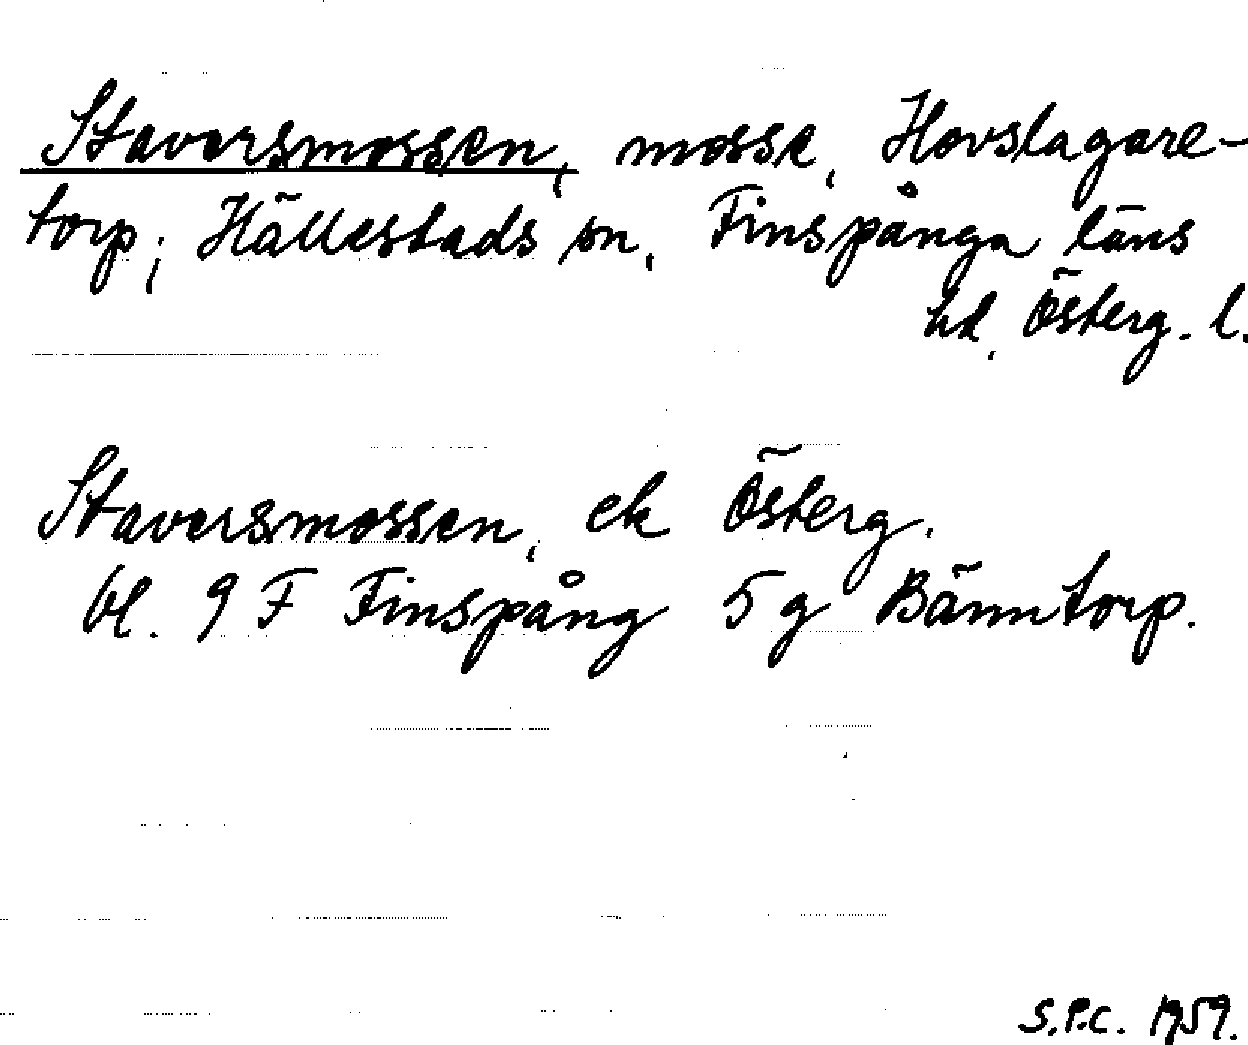 Staversmossen, mosse, Hovslagare-
torp, Hällestads sn, Finspånga läns
hd, Österg. l.
Staversmossen, ek Österg.
bl. 9 F Finspång 5 g Bänntorp.
S.P.C. 1959.